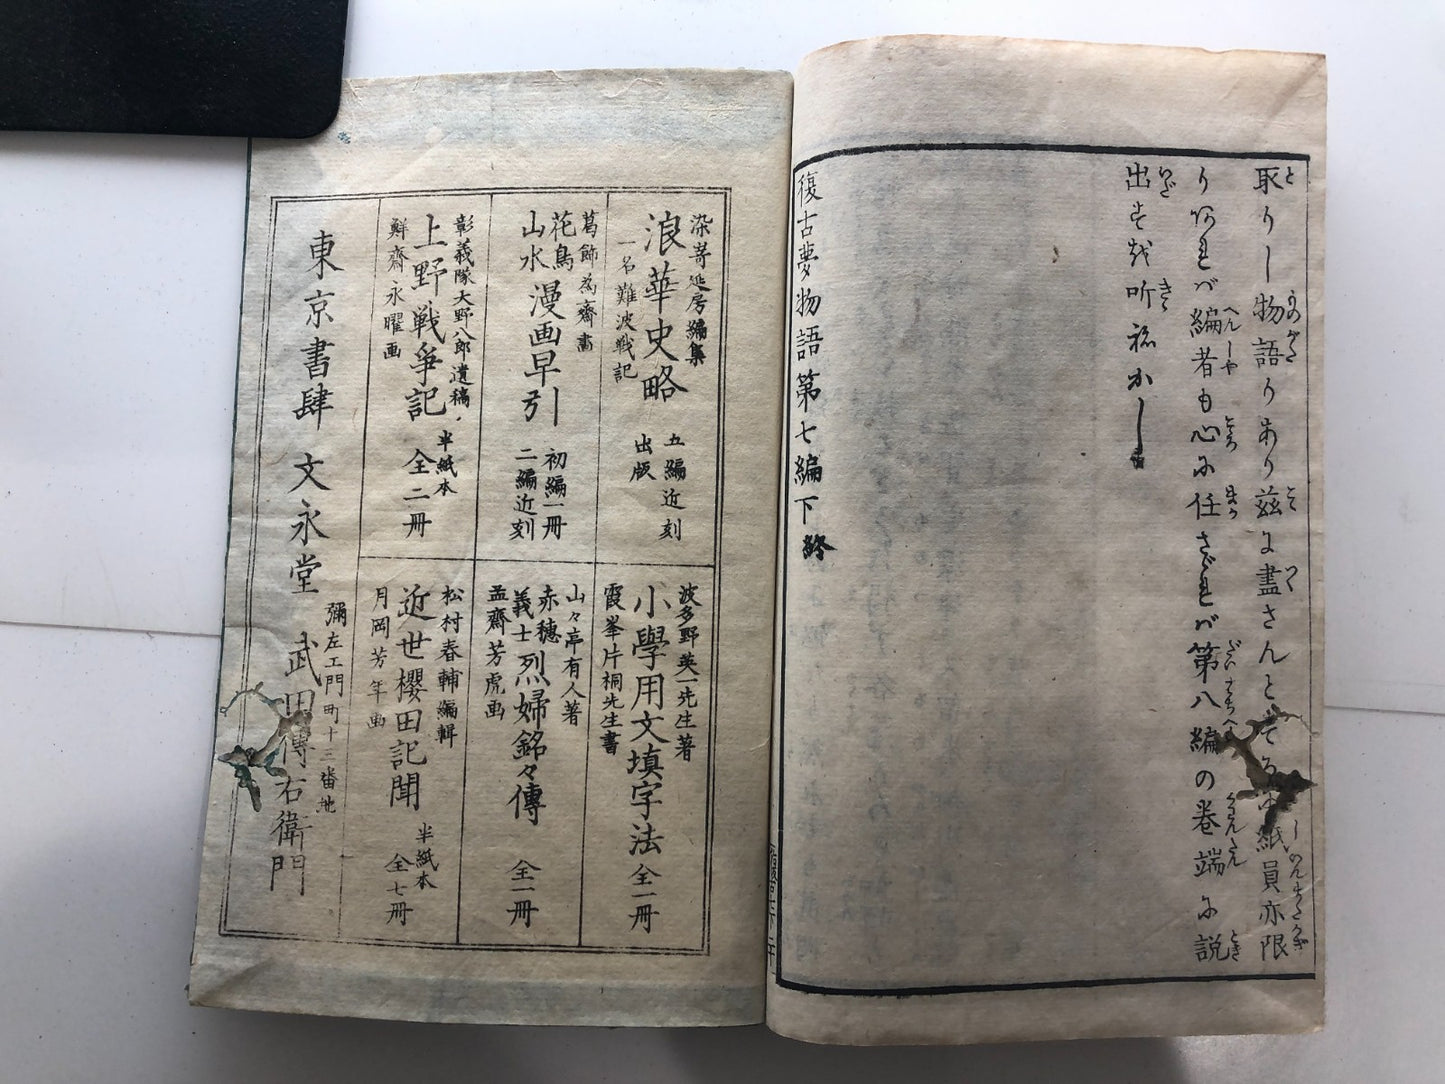 取りし物語りあり茲に盡さんとする
紙員亦限
りあれバ編者も心に任ざれバ第八編の巻端に説
出すを听
復古夢物語第七編下終
染嵜延房編集
浪華史略
一名難波戦記
五編近刻
出版
葛飾為齋画
花鳥
山水
漫画早引
初編一冊
二編近刻
彰義隊大野八郎遺稿
上野戦争記
鮮齋永曜画
半紙本
全二冊
波多野英一先生著
小學用文填字法
霞峯片桐先生書
全一冊
山々亭有人著
赤穂
義士
烈婦銘々傳
孟齋芳虎画
全一冊
松村春輔編輯
近世櫻田記聞
月岡芳年画
半紙本
全七冊
東京書肆 文永堂
彌左エ門町十三番地
武田傳右衛門